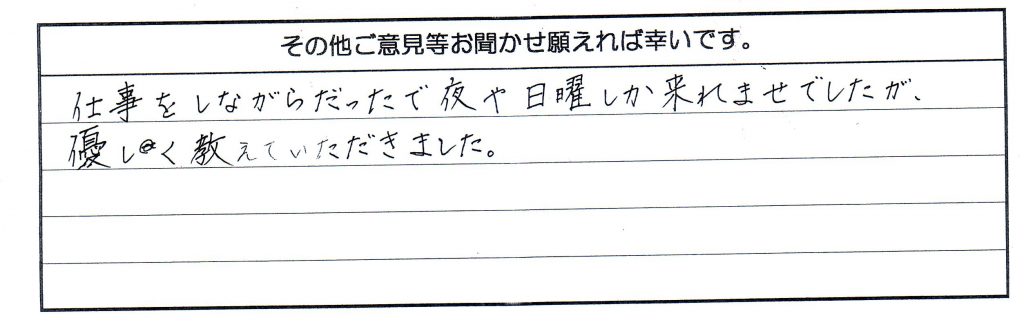 その他ご意見等お聞かせ願えれば幸いです。
仕事をしながらだったで夜や日曜しか来れませでしたが、
優しく教えていただきました。